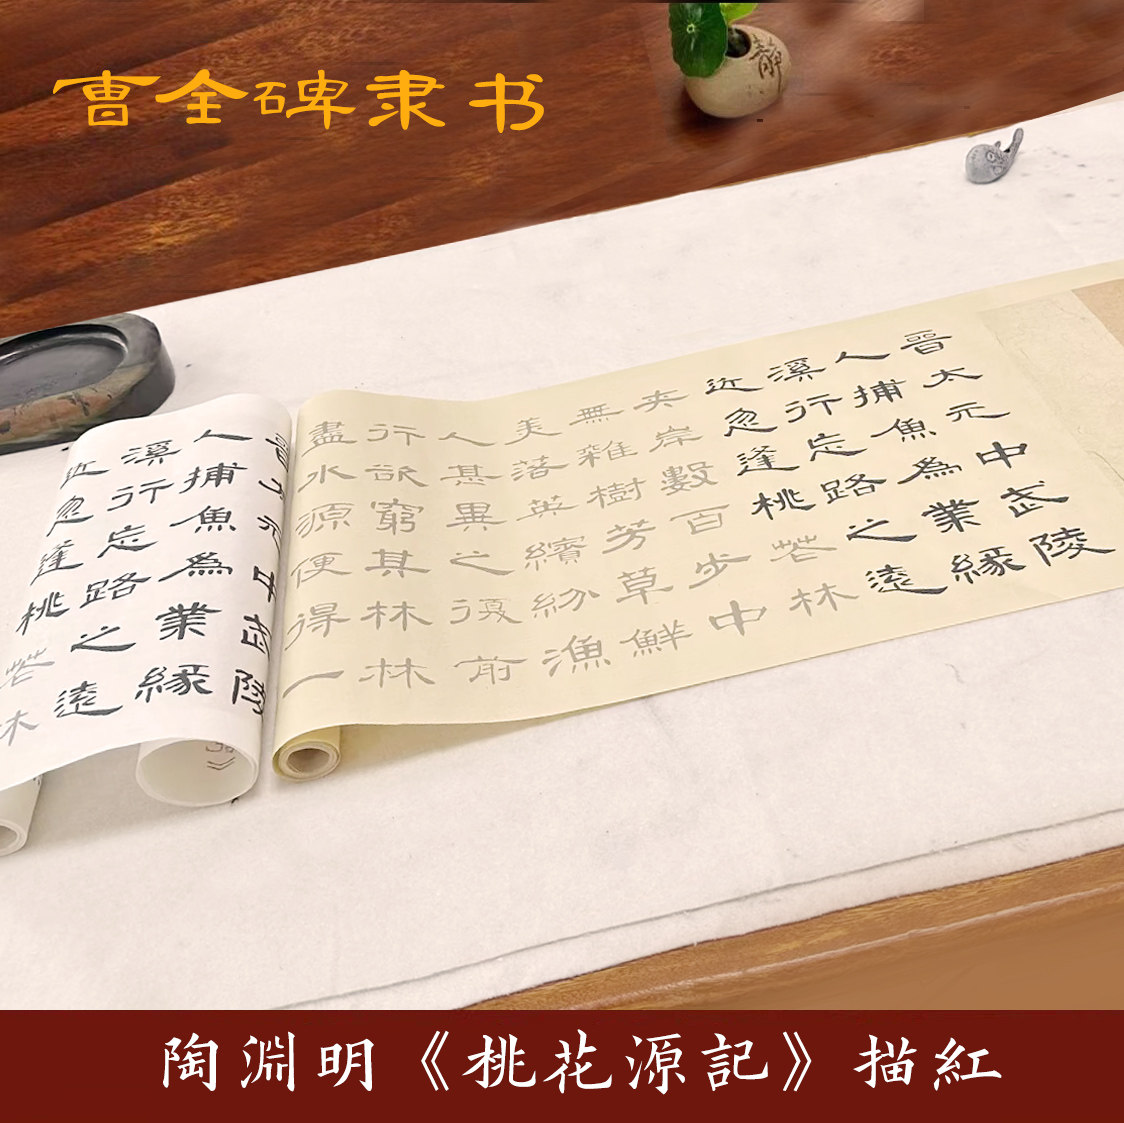 曹全碑隶书
靜
晉太元中武陵
人捕魚為業緣
溪行忘路之遠
近忽逢桃花林
夾岸數百步中
無雜樹芳草鮮
美落英繽紛漁
人甚異之復前
行欲窮其林林
盡水源便得一
晉太元中武陵
人捕魚為業緣
溪行忘路之遠
近忽逢桃花林
陶淵明《桃花源記》描紅